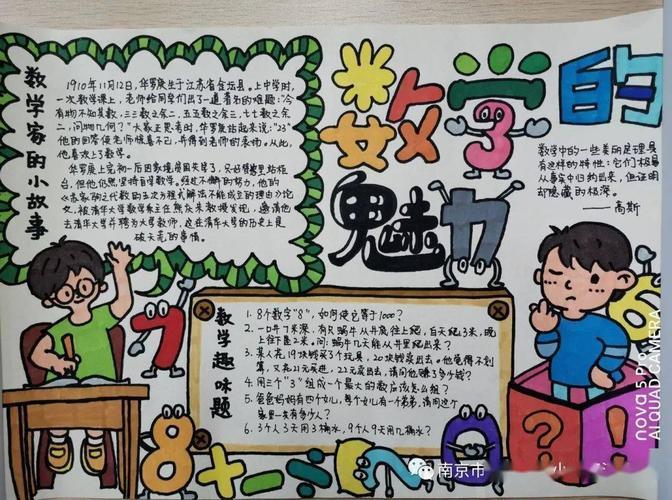 数学的
魅力
数学家的小故事
1910年11月12日,华罗庚生于江苏省金坛县。上中学时,
一次数学课上,老师给同学们出了一道著名的难题:“今
有物不知其数,三三数之余二,五五数之余三,七七数之余
二,问物几何?”大家正思考时,华罗庚站起来说:“23”
他的回答使老师惊喜不已,并得到老师的表扬。从此,
他喜欢上了数学。
华罗庚上完初一后因家境贫困失学了,只好替家里站柜
台,但他仍然坚持自学数学。经过不懈的努力,他的
《苏家驹之代数的五次方程式解法不能成立的理由》论
文,被清华大学数学系主任熊庆来教授发现,邀请他
去清华大学并聘为大学教师,这在清华大学的历史上是
破天荒的事情。
数学中的一些美丽定理具
有这样的特性:它们极易
从事实中归纳出来,但证明
却隐藏的极深。
——高斯
数学趣味题
1. 8个数字“8”,如何使它等于1000?
2. 一口井7米深,有只蜗牛从井底往上爬,白天爬3米,晚
上往下坠2米。问:蜗牛几天能从井里爬出来?
3. 某人花19块钱买了个玩具,20块钱卖出去。他觉得不划
算,又花21元买进,22元卖出去,请问他赚了多少钱?
4. 用三个“3”组成一个最大的数应该怎么组?
5. 爸爸妈妈有四个女儿,每个女儿有一个弟弟,请问这个
家里一共有多少人?
6. 3个人3天用3桶水,9个人9天用几桶水?
7
8
?
!
8+-÷
2
0
nova 5 Pro
AI QUAD CAMERA
南京市
小